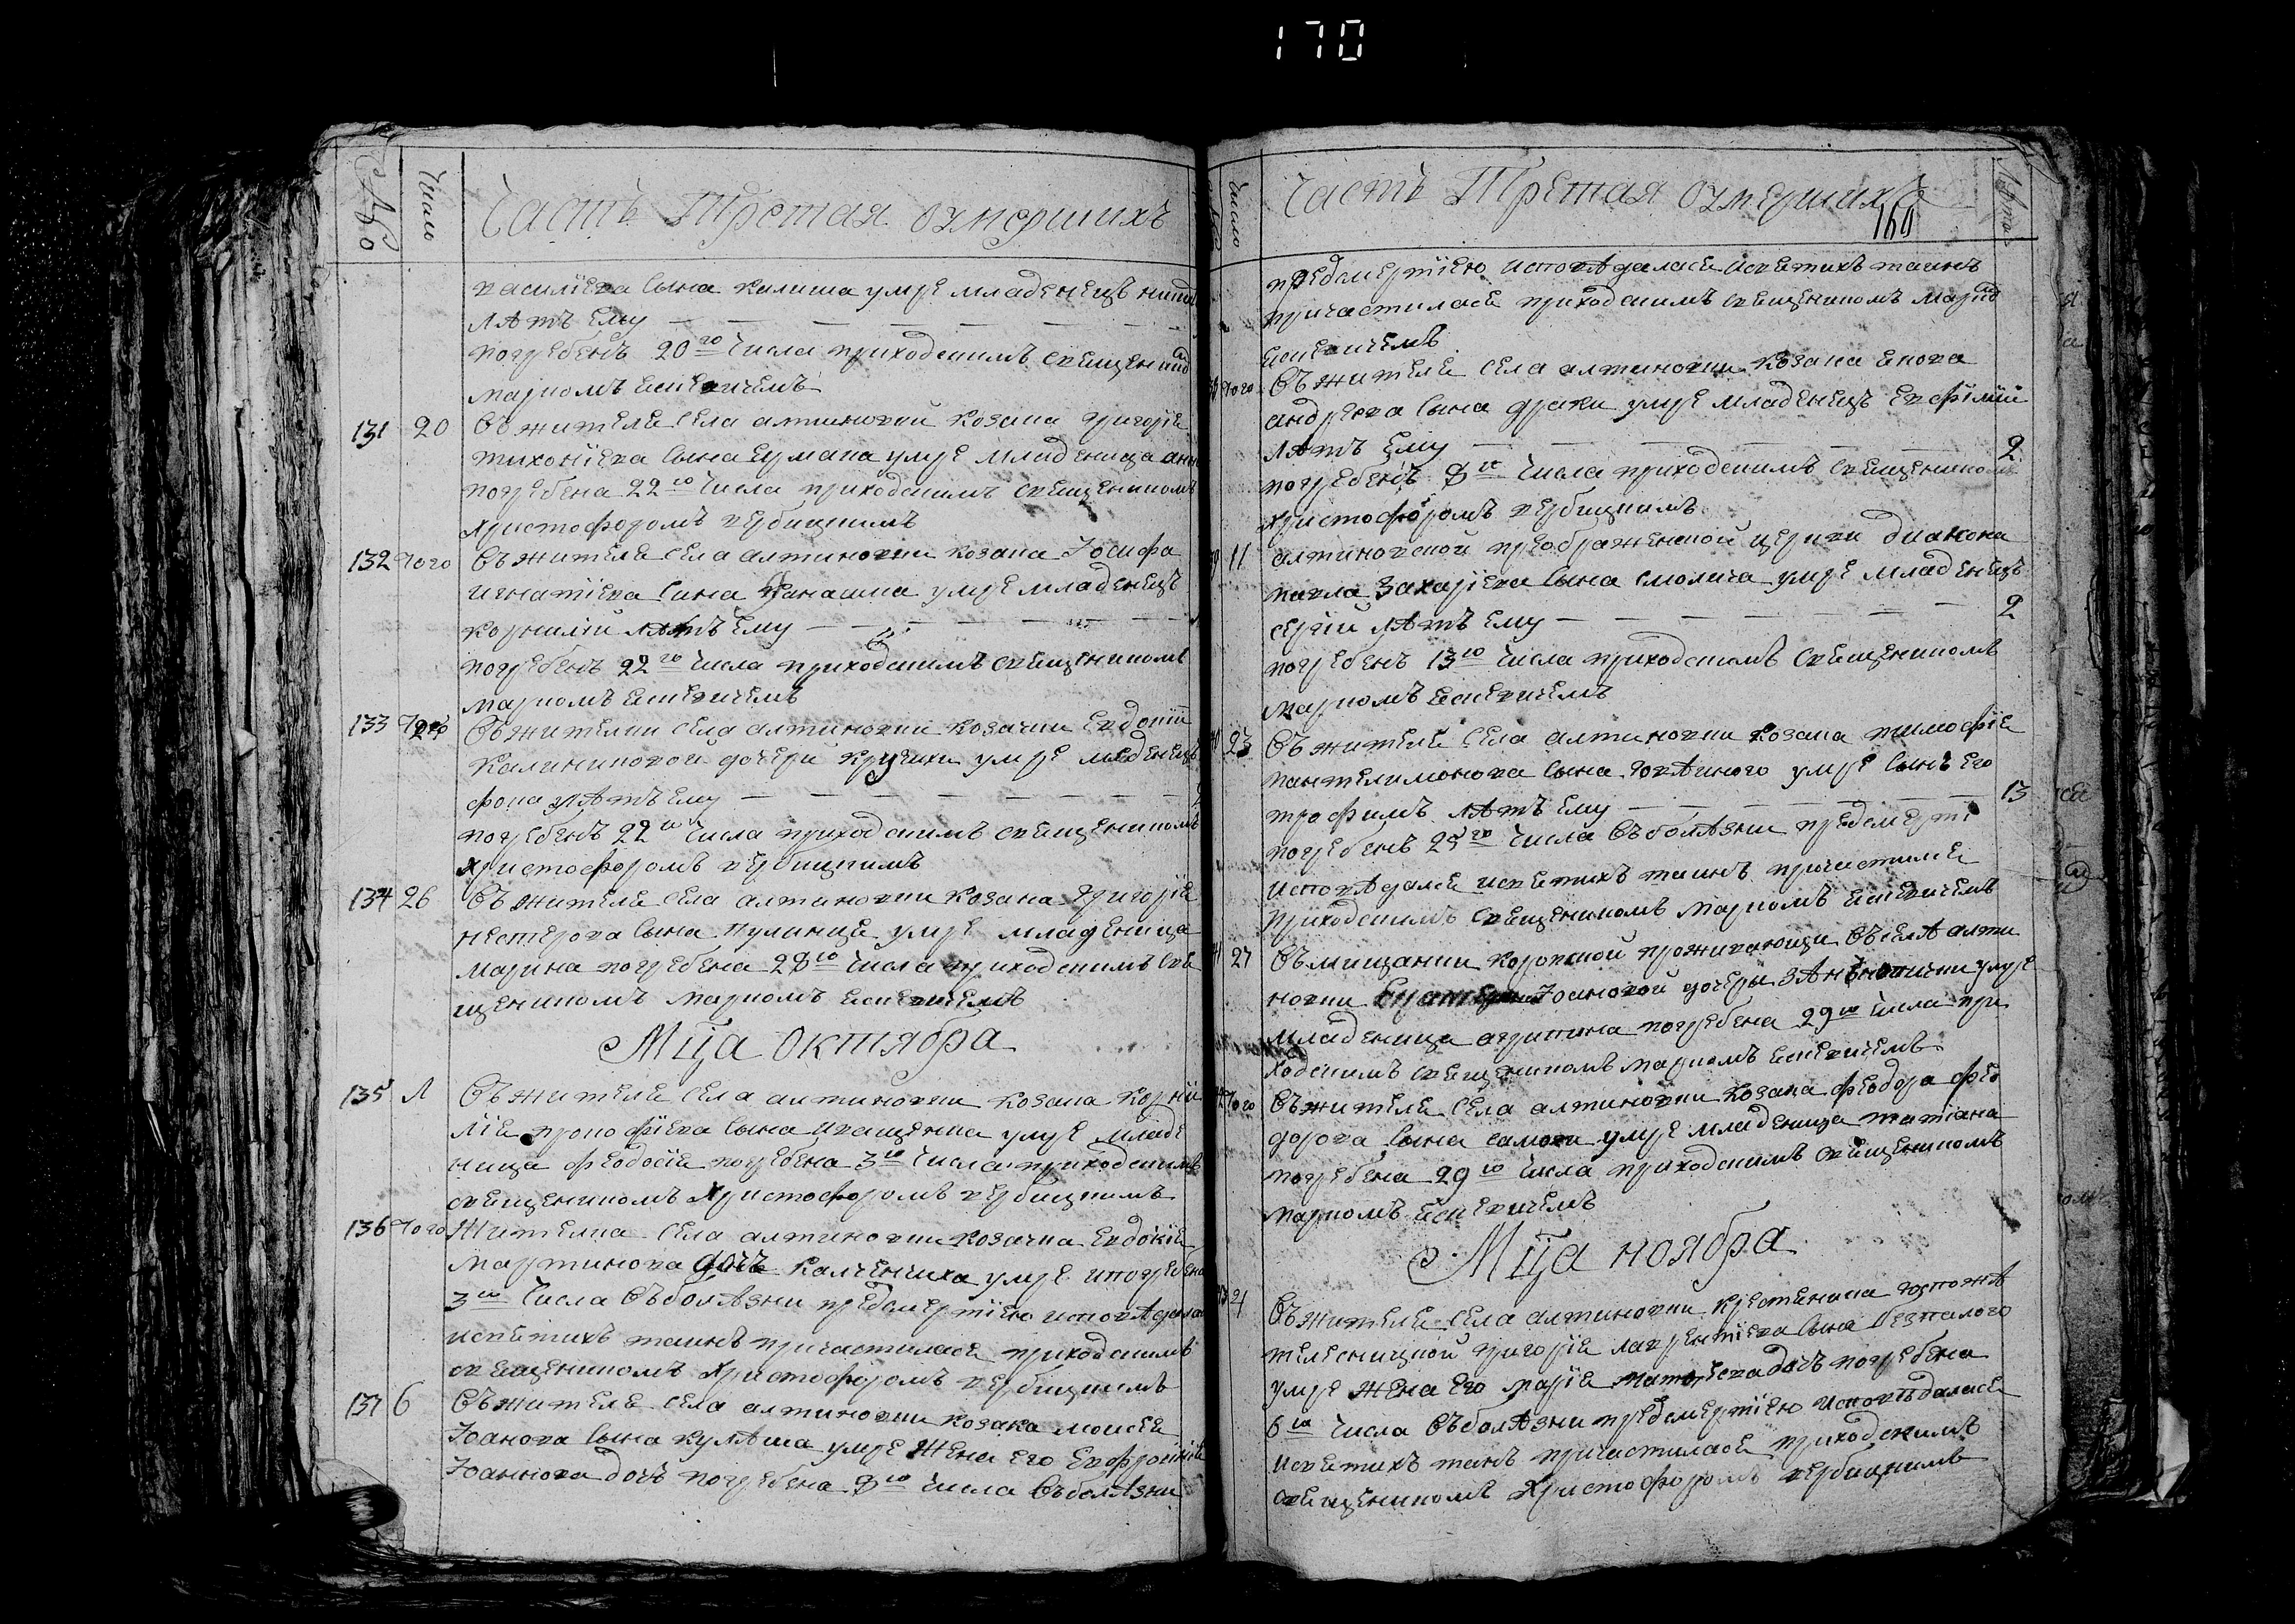 170
№
Число
Часть Третая оумершихъ
василіева сына калиша умре младенецъ
лѣтъ ему
погребенъ 20го числа приходскимъ священико
маркомъ еснevичемъ
131 20 въ жителя села алтиновки козака григорія
тихоніева сына ермака умре младеница анна
погребена 22го числа приходскимъ священикомъ
христофоромъ вербицкимъ
132 того въ жителя села алтиновки козака Іосифа
игнатіева сина умре младенецъ
корнилій лѣтъ ему
погребенъ 22го числа приходскимъ священикомъ
маркомъ есиевичемъ
133 того въ жителки села алтиновки козачки евдокіи
калиниковой дочери умре младенецъ
фока лѣтъ ему
погребенъ 22го числа приходскимъ священикомъ
христофоромъ вербицкимъ
134 26 въ жителя села алтиновки козака григорія
нестерова сына кулинця умре младеница
марина погребена 28го числа приходскимъ свя
щеникомъ маркомъ есиевичемъ
Мца Октября
135 1 въ жителя села алтиновки козака корни
лія прокофіева сына иващенка умре младе
ница феодосія погребена 3го числа приходскимъ
священикомъ христофоромъ вербицкимъ
136 того жителка села алтиновки козачка евдокія
мартинова дочь калченчиха умре ипогребена
3го числа въболѣзни предсмертію исповѣдала
исвятихъ таинъ причастилася приходскимъ
священикомъ христофоромъ вербицкимъ
137 6 въжителя села алтиновки козака моисея
Іоанова сына кулѣша умре жена его евфросинія
Іоаннова дочъ погребена 8го числа въболѣзни
Число
Часть Третая оумершихъ
160
Лѣта
предсмертію исповѣдалася исвятихъ таинъ
причастилася приходскимъ священикомъ марко
есиевичемъ
того въ жителя села алтиновки козака якова
андреева сына умре младенецъ евфімій
лѣтъ ему 2
погребенъ 8го числа приходскимъ священикомъ
христофоромъ вербицкимъ
11 алтиновской преображенской церкви диакона
павла захаріева сына смолича умре младенецъ
сергій лѣтъ ему 2
погребенъ 13го числа приходскимъ священикомъ
маркомъ есиевичемъ
23 въ жителя села алтиновки козака тимофія
пантелимонова сына умре сынъ его
трофимъ лѣтъ ему 13
погребенъ 25го числа въболѣзни предсмерті
исповѣдался исвятихъ таинъ причастился
приходскимъ священикомъ маркомъ есиевичемъ
27 въмищанки коропской проживающи въселѣ алти
новки Іоановой дочери умре
младеница агрипина погребена 29го числа при
ходскимъ священикомъ маркомъ есиевичемъ
того въжителя села алтиновки козака феодора фео
дорова сына самохи умре младеница татіана
погребена 29го числа приходскимъ священикомъ
маркомъ есиевичемъ
Мца ноября
4 въжителя села алтиновки крестянина госпожѣ
григорія лаврентіева сына безпалого
умре жена его марія дочъ погребена
6го числа въболѣзни предсмертію исповѣдалася
исвятихъ таинъ причастилася приходскимъ
священикомъ христофоромъ вербицкимъ